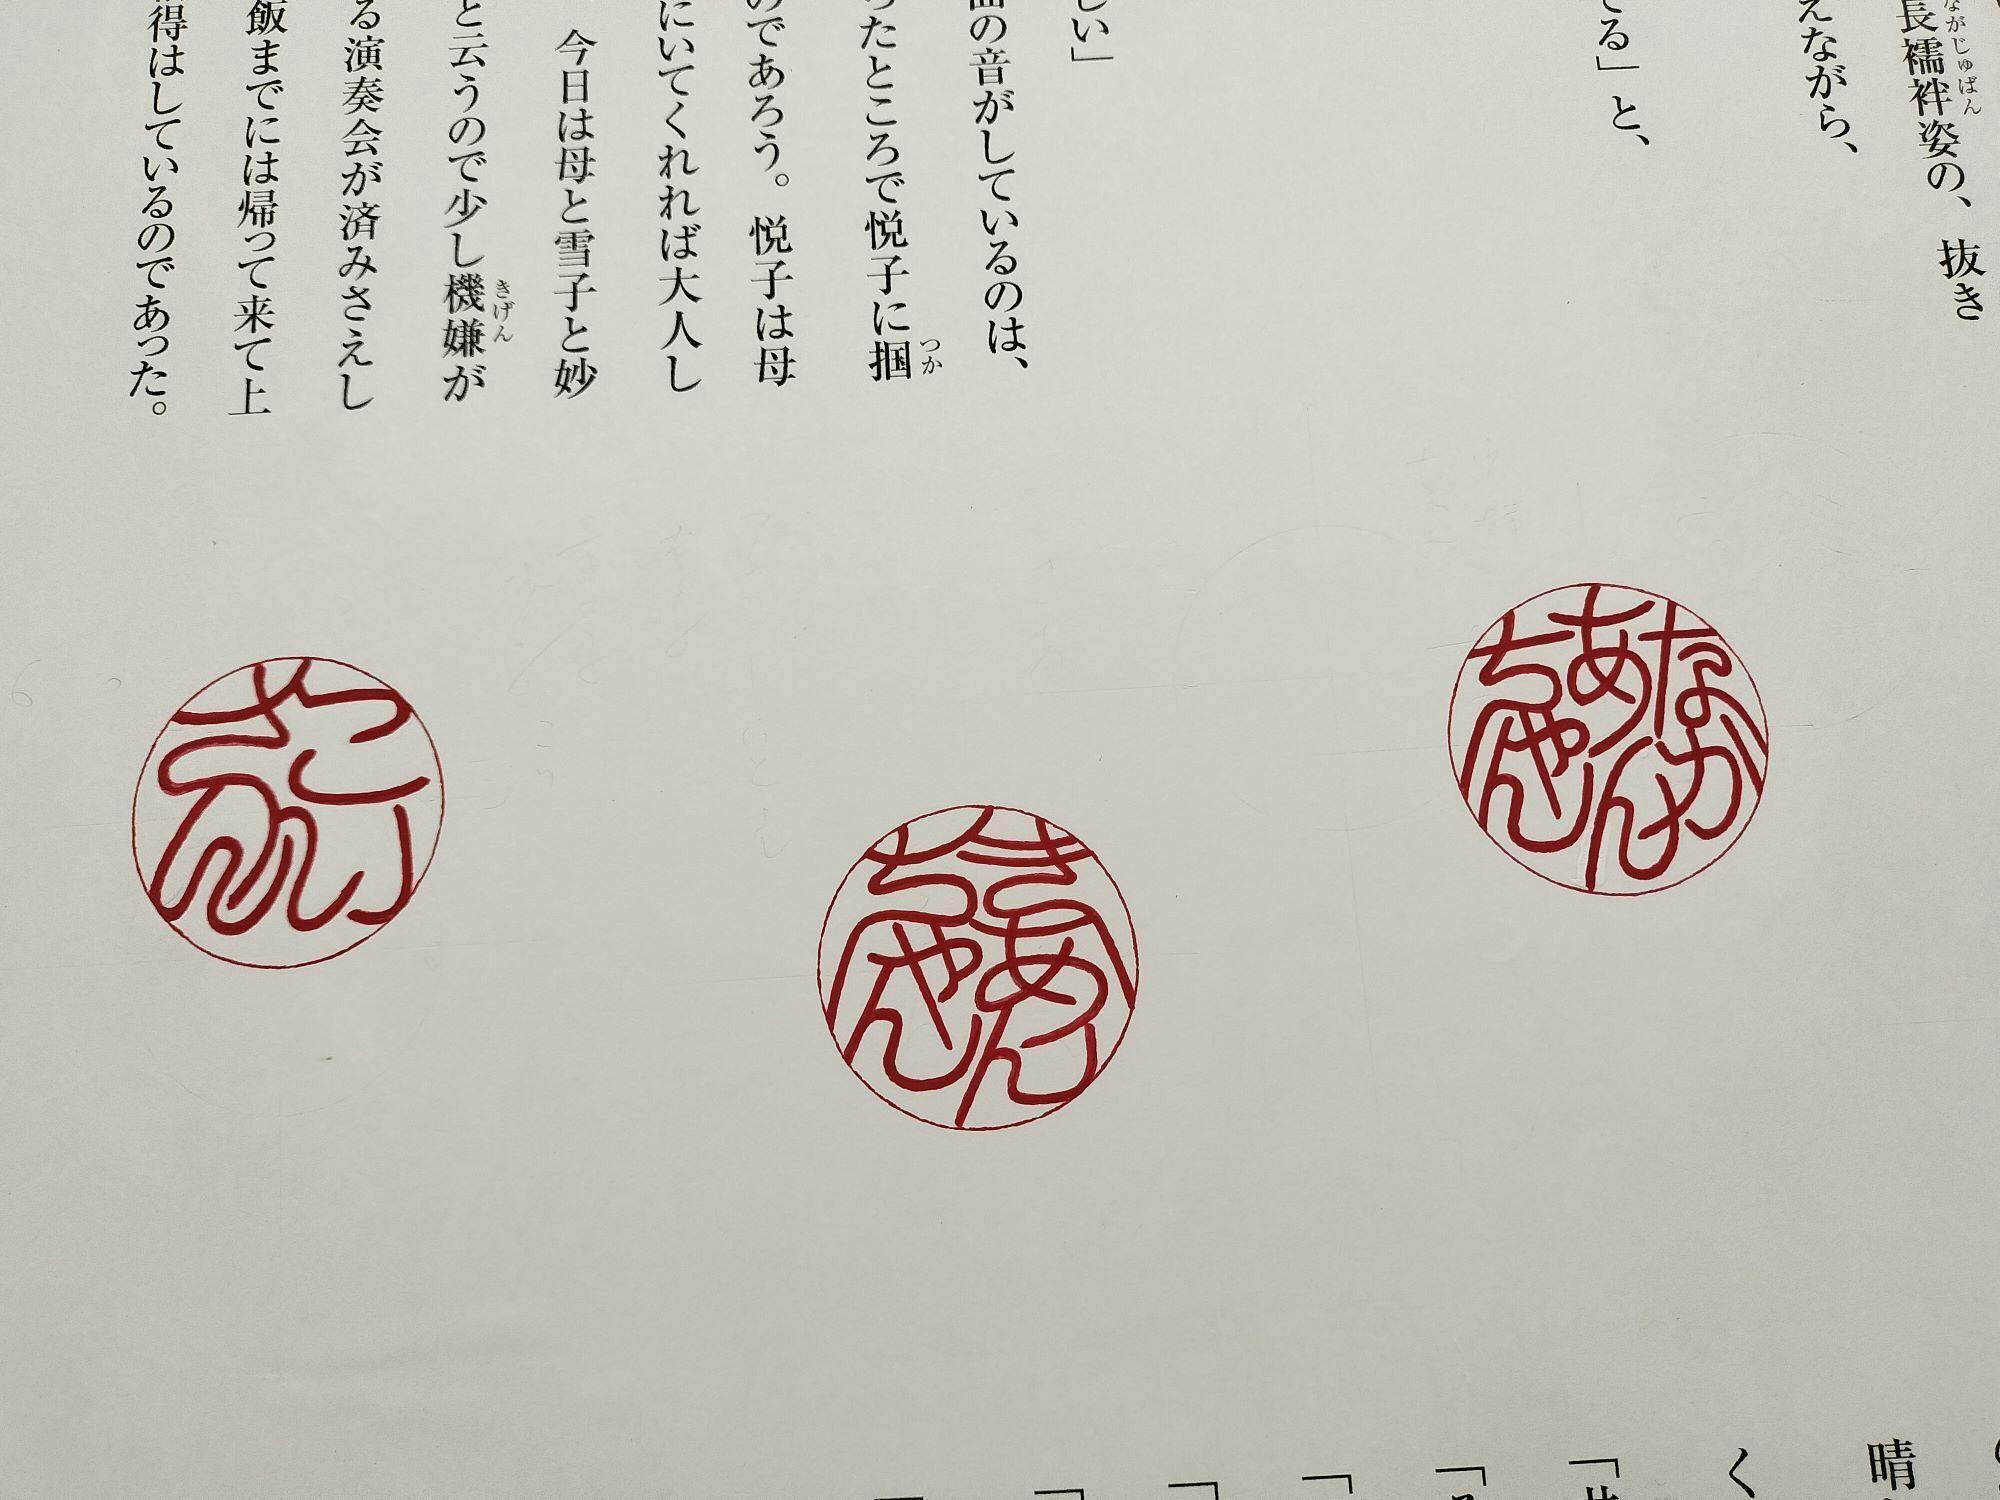 長襦袢姿の、抜き
えながら、
てる」と、
しい」
の音がしているのは、
ったところで悦子に掴
のであろう。悦子は母
にいてくれれば大人し
今日は母と雪子と妙
と云うので少し機嫌が
る演奏会が済みさえし
飯までには帰って来て上
得はしているのであった。
なかあんちゃん
きあんちゃん
こいさん
晴
く